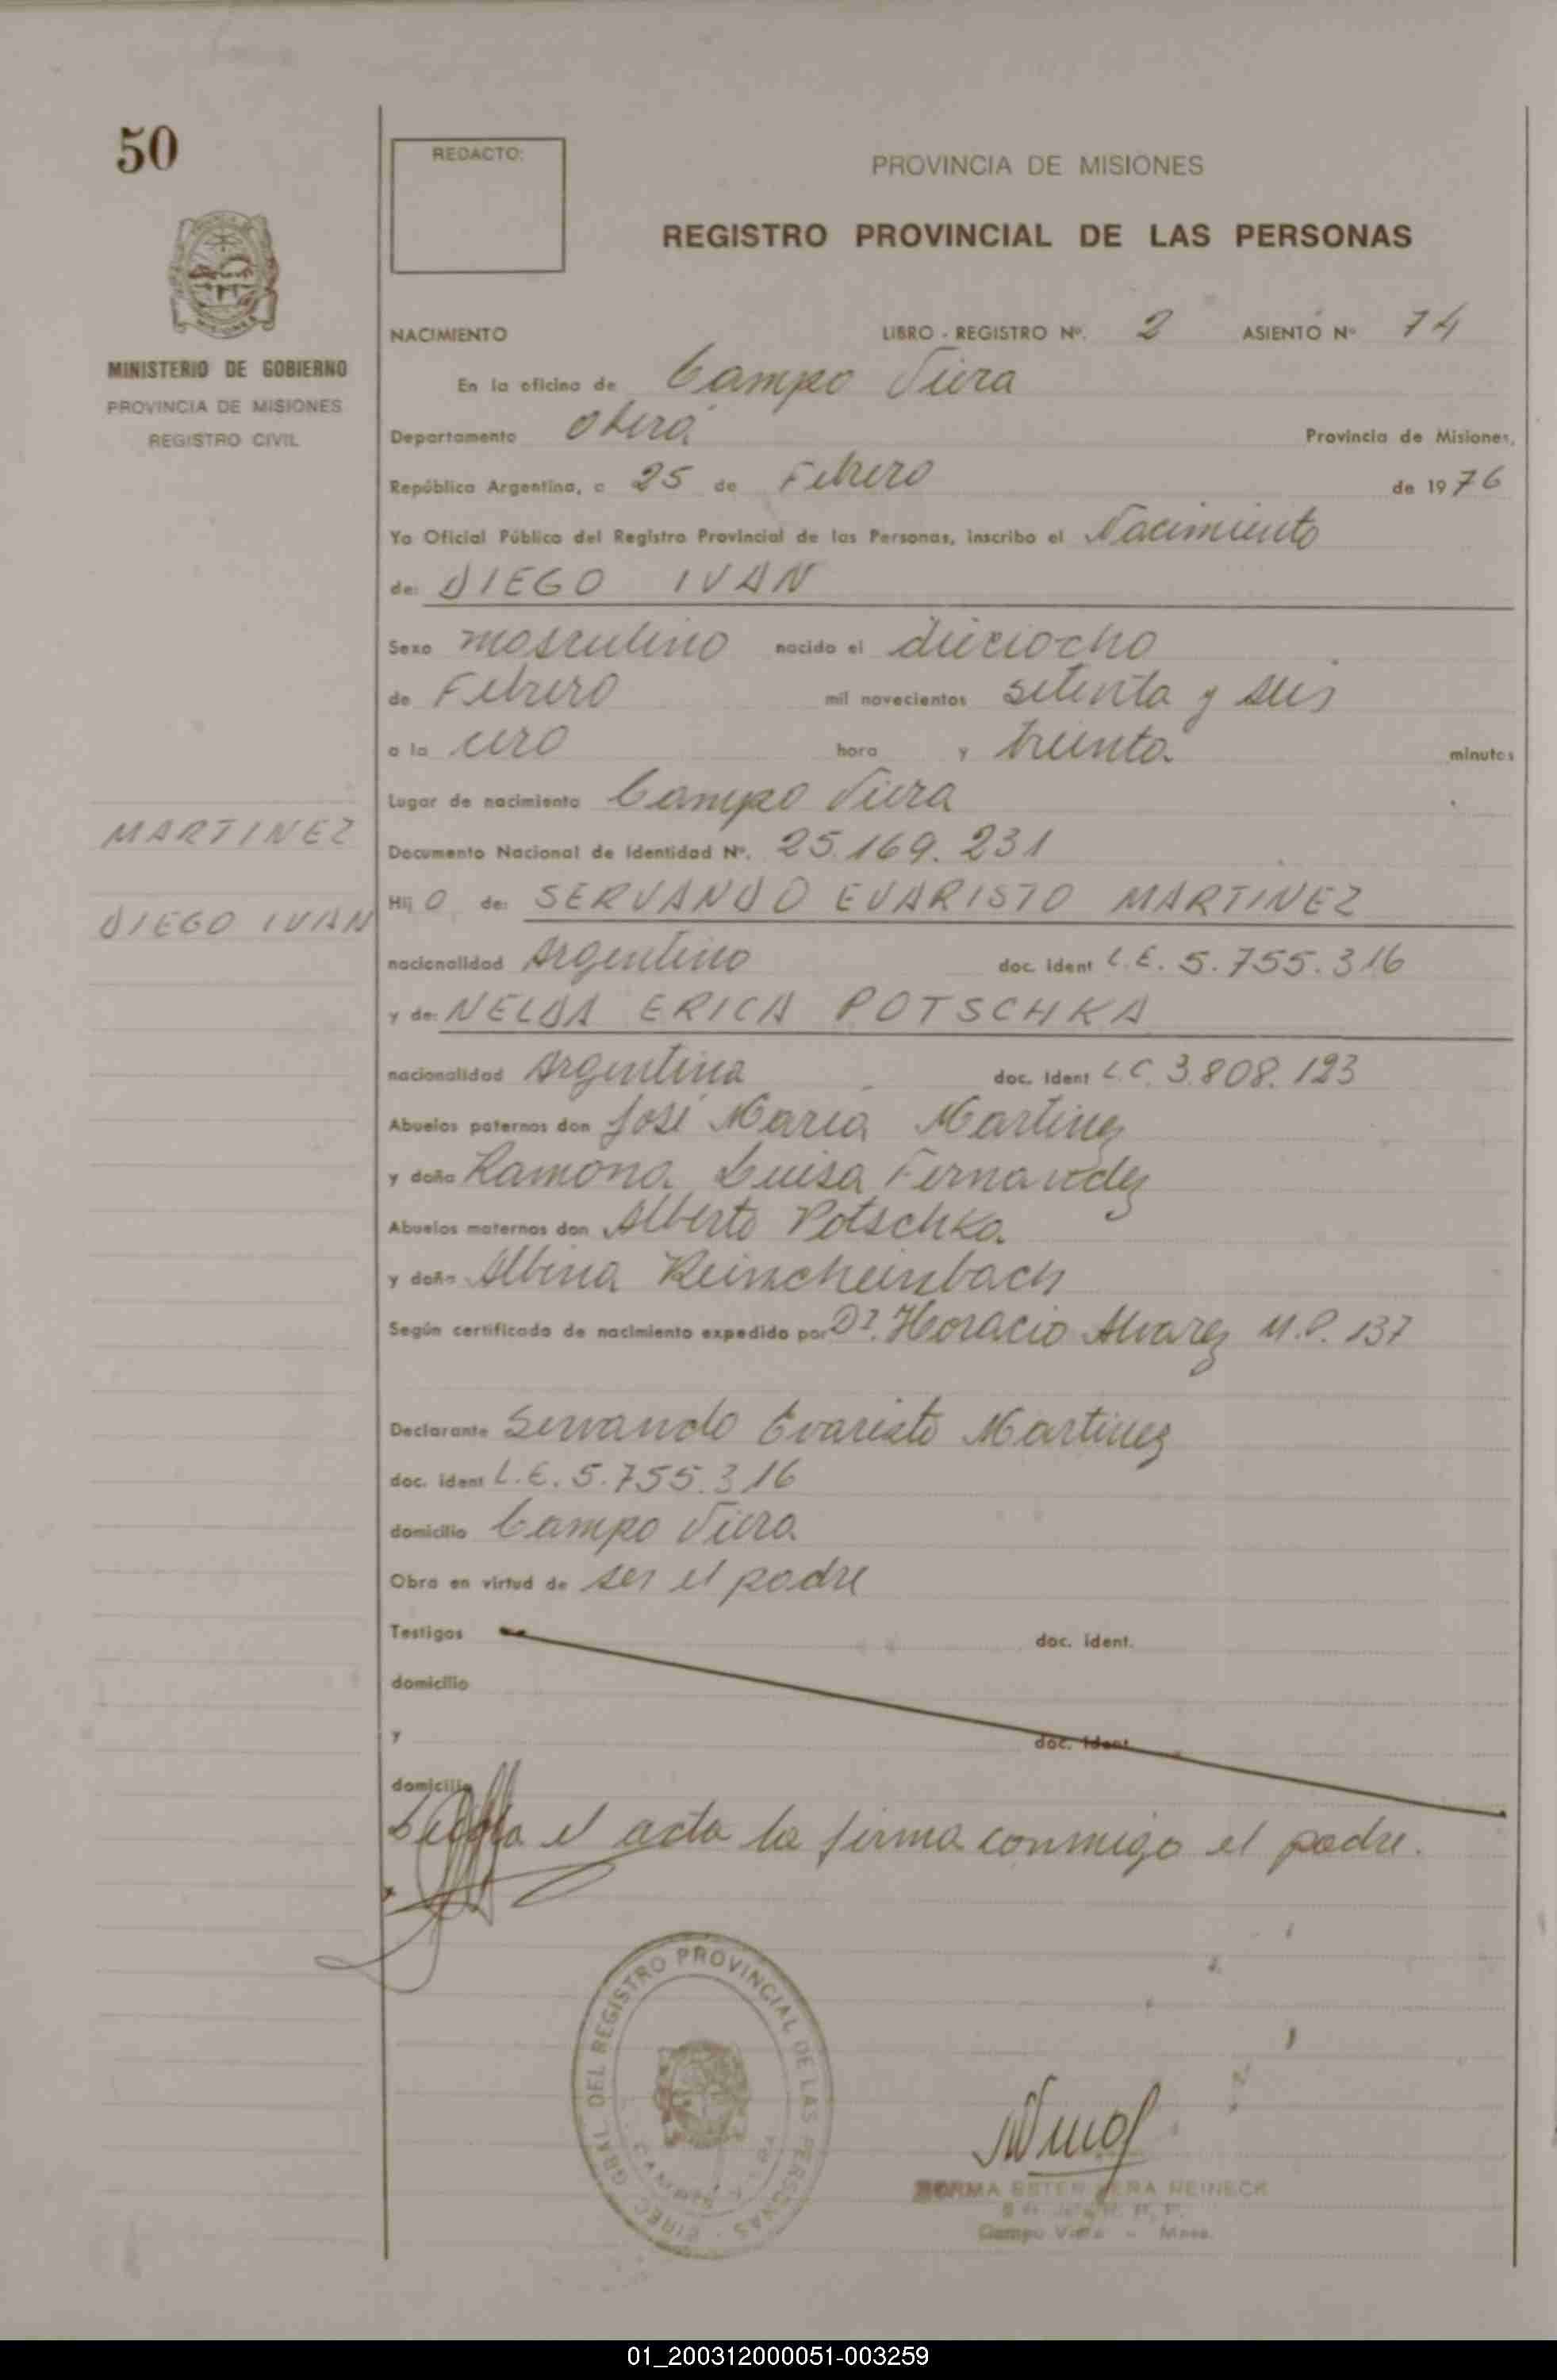 50
REDACTO:
PROVINCIA DE MISIONES
REGISTRO PROVINCIAL DE LAS PERSONAS
MINISTERIO DE GOBIERNO
PROVINCIA DE MISIONES
REGISTRO CIVIL
NACIMIENTO LIBRO - REGISTRO Nº. 2 ASIENTO Nº 74
En la oficina de Campo Viera
Departamento Oberá Provincia de Misiones,
República Argentina, a 25 de Febrero de 1976
Yo Oficial Público del Registro Provincial de las Personas, inscribo el Nacimiento
de: DIEGO IVAN
Sexo masculino nacido el dieciocho
de Febrero mil novecientos setenta y seis
a la cero hora y treinta minutos
Lugar de nacimiento Campo Viera
MARTINEZ
Documento Nacional de Identidad Nº. 25.169.231
Hij o de: SERVANDO EVARISTO MARTINEZ
DIEGO IVAN
nacionalidad Argentino doc. ident L.E. 5.755.316
y de: NELDA ERICA POTSCHKA
nacionalidad Argentina doc. ident L.C. 3.808.123
Abuelos paternos don José María Martinez
y doña Ramona Luisa Fernandez
Abuelos maternos don Alberto Potschka
y doña Albina Reincheinbach
Según certificado de nacimiento expedido por Dr. Horacio Alvarez M.P. 137
Declarante Servando Evaristo Martinez
doc. ident L.E. 5.755.316
domicilio Campo Viera
Obra en virtud de ser el padre
Testigos doc. ident.
domicilio
y doc. ident
domicilio
el acta la firma conmigo el padre.
DIREC. GRAL. DEL REGISTRO PROVINCIAL DE LAS PERSONAS
NORMA ESTER REINECK
Campo Viera - Mnes.
01_200312000051-003259